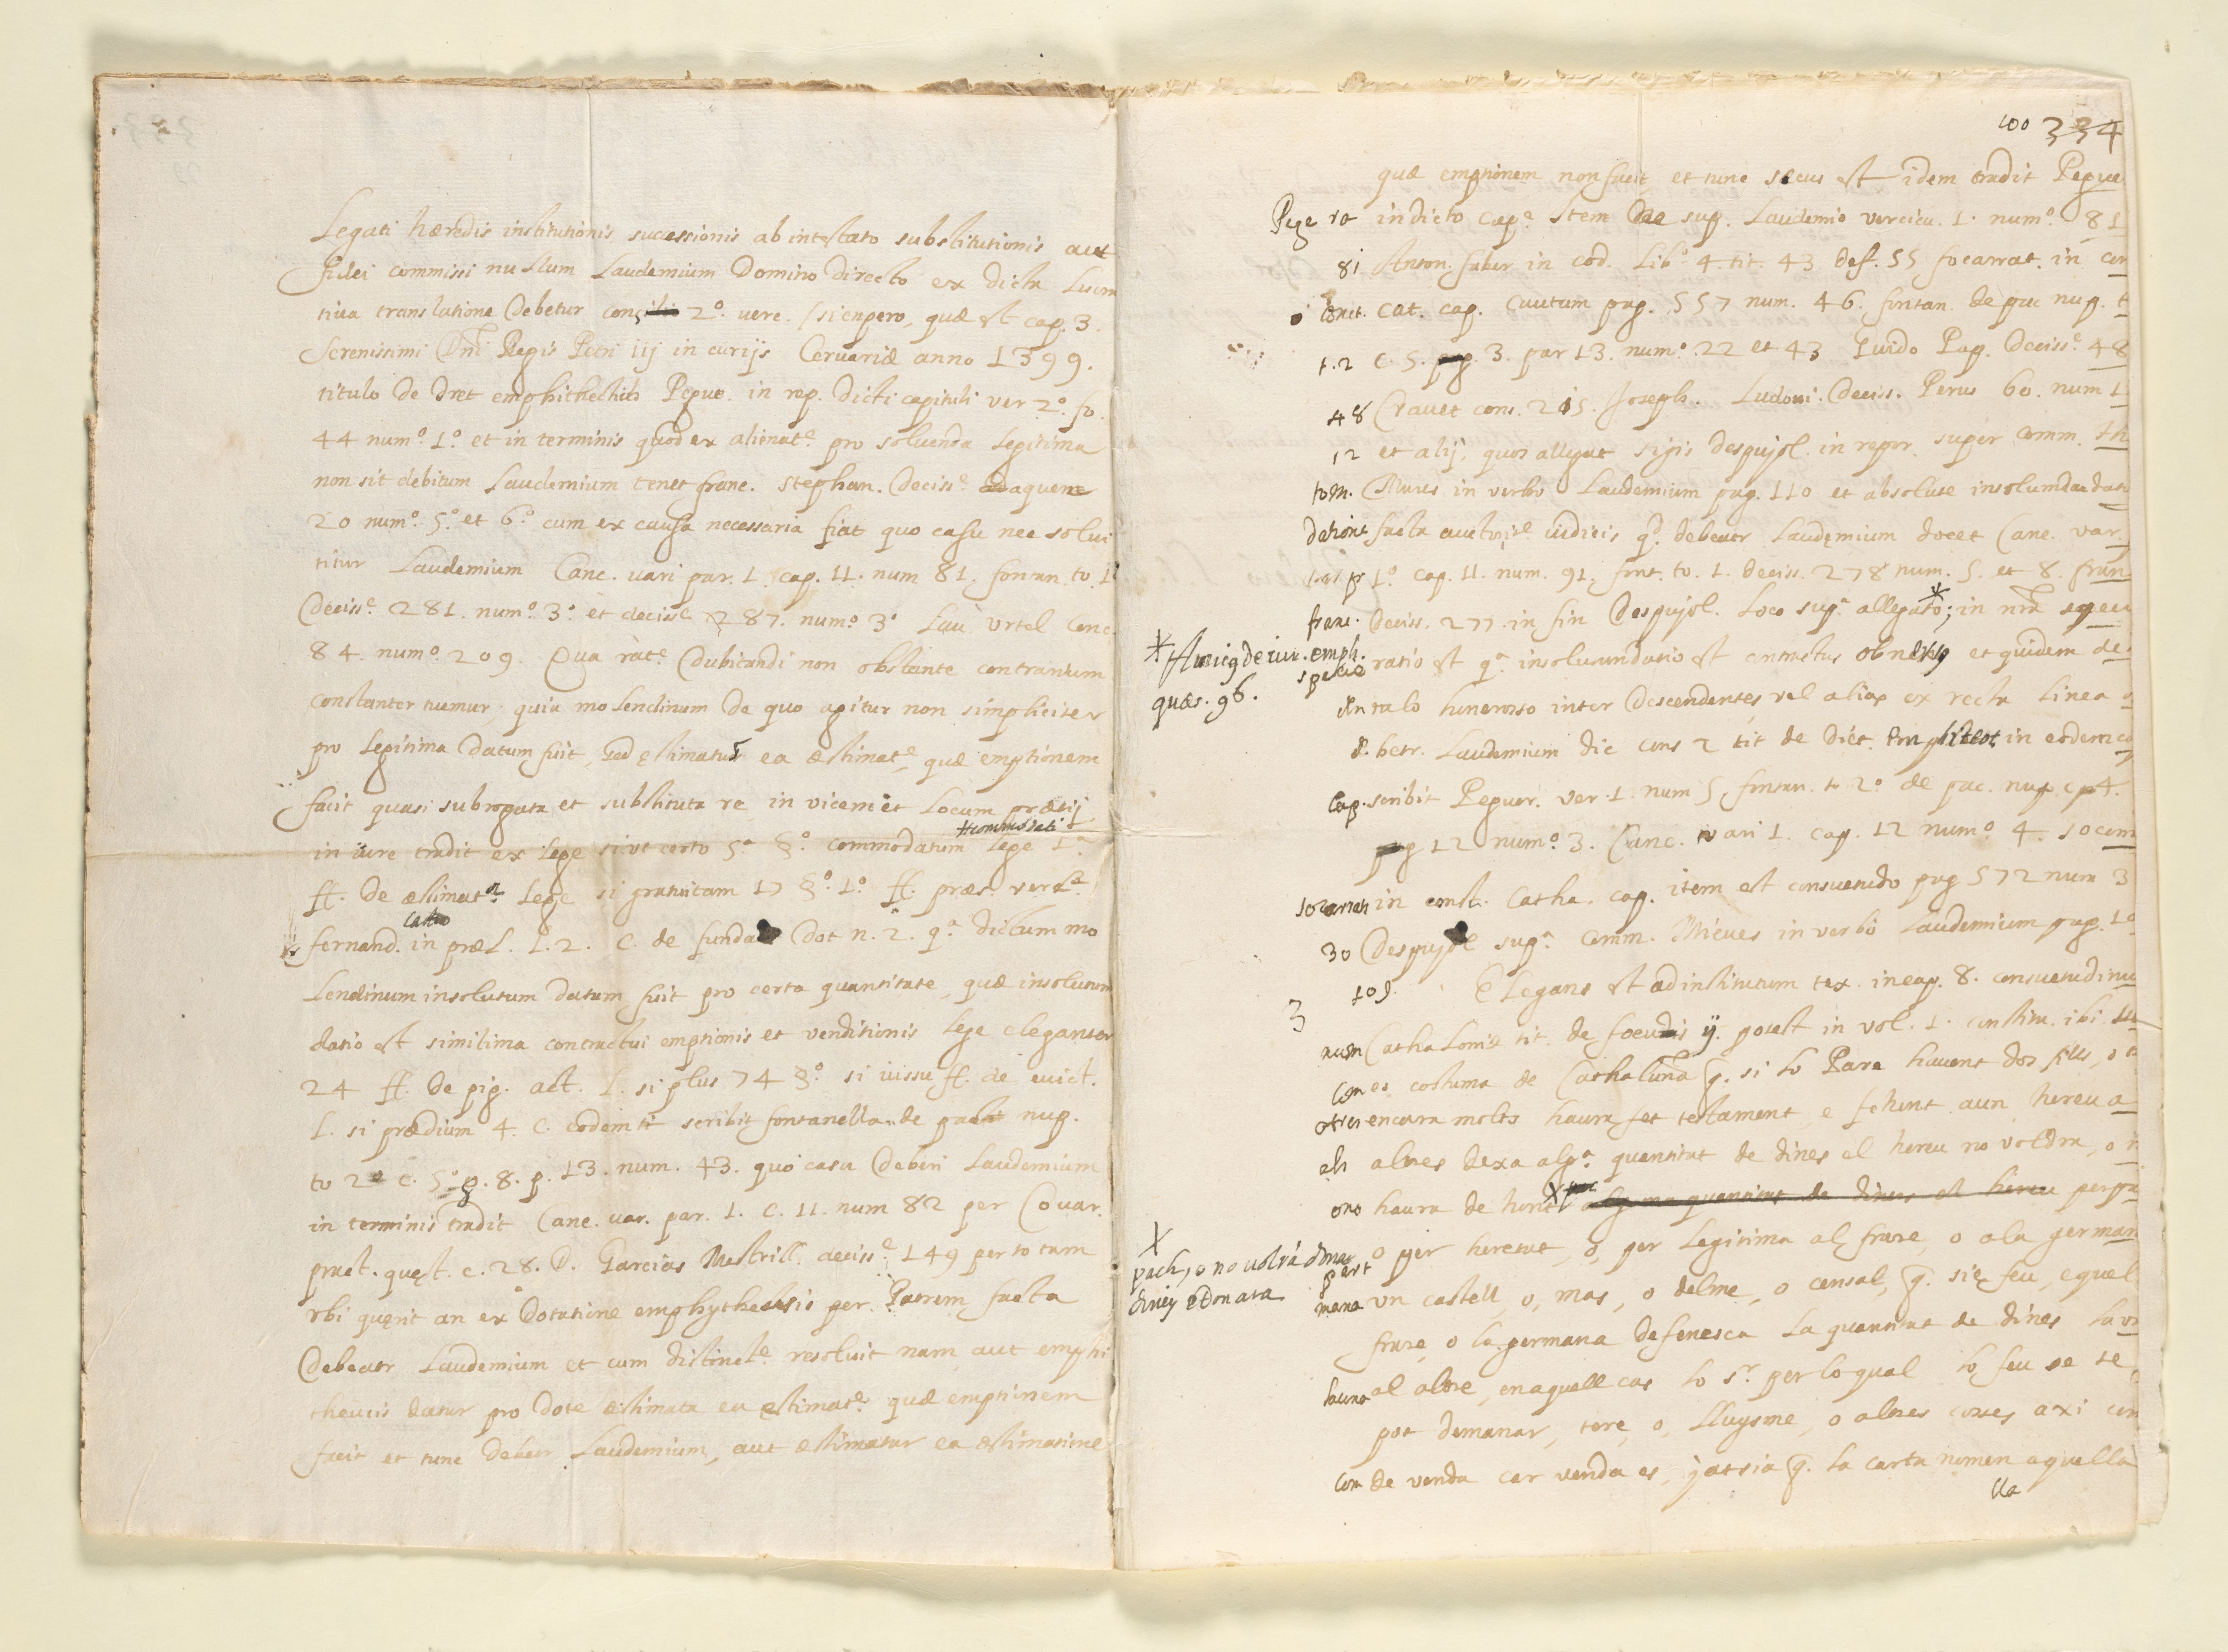 Legati hæredis institutionis successionis ab intestato substitutionis aut
fidei commissi nullum Laudemium Domino directo ex dicta Lucra
tiva translatione Debetur 2º. vere. quæ est cap. 3.
Serenissimi Dni Regis Petri iij in curijs Cervariæ anno 1399.
titulo de dret emphithechth Peguer. in rep. dicti capituli ver 2º. fo.
44 numº. 1º. et in terminis quod ex alienatᵉ. pro solvenda Legitima
non sit debitum Laudemium tenet franc. Stephan. Decissᵉ.
20 numº. 5º. et 6º. cum ex causa necessaria fiat quo casu nec solvi
titur Laudemium Canc. vari par. 1. cap. 11. num 81. fontan. to. 1º
Decissᵉ. 281. numº. 3º. et decissᵉ 287. numº. 3º Lau Urtel Conc.
84. numº. 209. Qua ratᵉ. Dubitandi non obstante contrarium
constanter tuemur, quia molendinum de quo agitur non simpliciter
pro Legitima datum fuit, sed estimatur ea æstimatᵉ. quæ emptionem
facit quasi subrogata et substituta re in vicem et Locum prætij
commodati
in iure tradit ex Lege si ut certo 5ª §º. commodatum Lege 1ª
ff. de æstimatᵉ. Lege si gratuitam 17 §º. 1º. ff. præs. verbᵉ.
fernand. in præl. L. 2. C. de funda Dot n. 2. qª. dictum mo
Lendinum insolutum datum fuit pro certa quantitate, quæ insolutum
datio est similima contractui emptionis et venditionis Lege eleganter
24 ff. de pig. act. L. si plus 74 §º. si iussu ff. de evict.
L. si prædium 4. C. eodem tt scribit fontanella de pact nup.
to 2º C. 5. g. 8. p. 13. num. 43. quo casu Deberi Laudemium
in terminis tradit Canc. var. par. 1. C. 11. num 82 per Covar.
pract. quęst. c. 28. D. Garcias Mastrill. decissᵉ. 149 per totam
Vbi quęrit an ex Dotatione emphytheosis per Patrem facta
Debeatr Laudemium et cum distinctᵉ. resolvit nam aut emphi
theucis datur pro dote æstimata ea estimatᵉ. quæ emptionem
facit et tunc debetr Laudemium, aut æstimatur ea æstimatione
100 334
quæ emptionem non facit et tunc secus est idem tradit Pegue
Pege ra in dicto capᵉ. Item sup. Laudemio vercicu. 1. numº. 81
81 Anton. faber in cod. Libº. 4. tit. 43 def. 55 socarrat. in con
const. cat. cap. Cautum pag. 557 num. 46. fontan. de pac nup. t
t. 2 C. 5. 3. par 13. numº. 22 et 43 Guido Pap. Decissᵉ. 48
48 Cravet cons. 215. Joseph. Ludovi. Deciss. Perus 60. num 1
12 et alij, quos allegat sigis despujol. in reper. super Comm. Th
tom. Mieres in verbo Laudemium pag. 110 et absolute insolumdandatio
dations facta auctoritᵉ. iudicis qd. debeatr Laudęmium docet Canc. var.
1º. cap. 11. num. 91. font. to. 1. deciss. 278 num. 5. et 8. fran
franc. deciss. 277. in fin Despujol. Loco supª. allegato*; in nrã specu
* Amicg de iur. emph.
quæs. 96.
specie ratio est qª. insolutundatio est contractus obnexius et quidem de
talo honeroso inter Descendentes, vel alios ex recta Linea
d. betr. Laudemium dic cons 2 tit de dict. Emphiteot in eodem ca
Cap. scribit Peguer. ver. 1. num 5, fontan. to. 2º. de pac. nup. cp 4.
pag 12 numº. 3. Canc. vari 1. cap. 12 numº 4. socam
socarrats in const. Catha. cap. item est consuetudo pag 572 num 3
30 Despujol supª. Comm. Mieres in verbo Laudemium pag. 10
3 109. Elegans est ad institutum tex. in cap. 8. consuetudinu
num Cathalonie tit. de foeudis ij. potest in vol. 1. constitu. ibi
com es costuma de Cathaluña q. si lo Pare havent dos fills, o
otres encara molts haura fet testament, e fehent aun hereu a
als altres dexa algª. quantitat de dines el hereu no voldra, o n
ono haura de hont X alguna quantitat de dines el hereu perpa
X
pach, o no voldrà donar
diney e Donara
part o per heretat, o, per Legitima al frare, o ala german
mana vn castell, o, mas, o delme, o censal, q. sie feu, e quel
frare o la germana defenesca la quantitat de dines la vn
launa al altre, en aquell cas lo Sr. per lo qual lo feu se te,
pot demanar, terç, o, Lluysme, o altres coses axi com
com de venda car venda es, jatsia q. la carta nomen aquella
lla